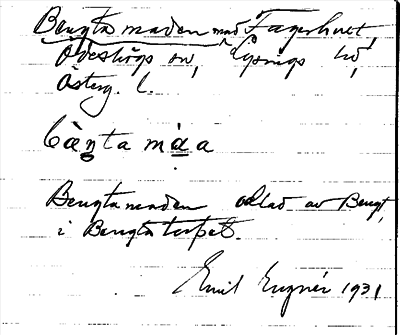 Bengta maden mad Fagerhult,
Ödeshögs sn, Lysings hd,
Österg. l.
bàŋta máa
Bengtamaden odlad av Bengt,
i Bengtatorpet.
Emil Engnér 1931